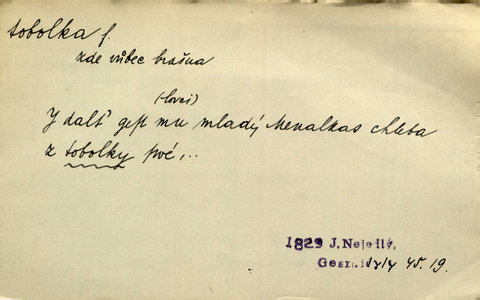 tobolka f.
zde vůbec brašna
(-lovci)
Y dalť geſt mu mladý Menalkas chleba
z tobolky ſwé,..
1829 J. Nejedlý,
Gessn. idyly 45.19.